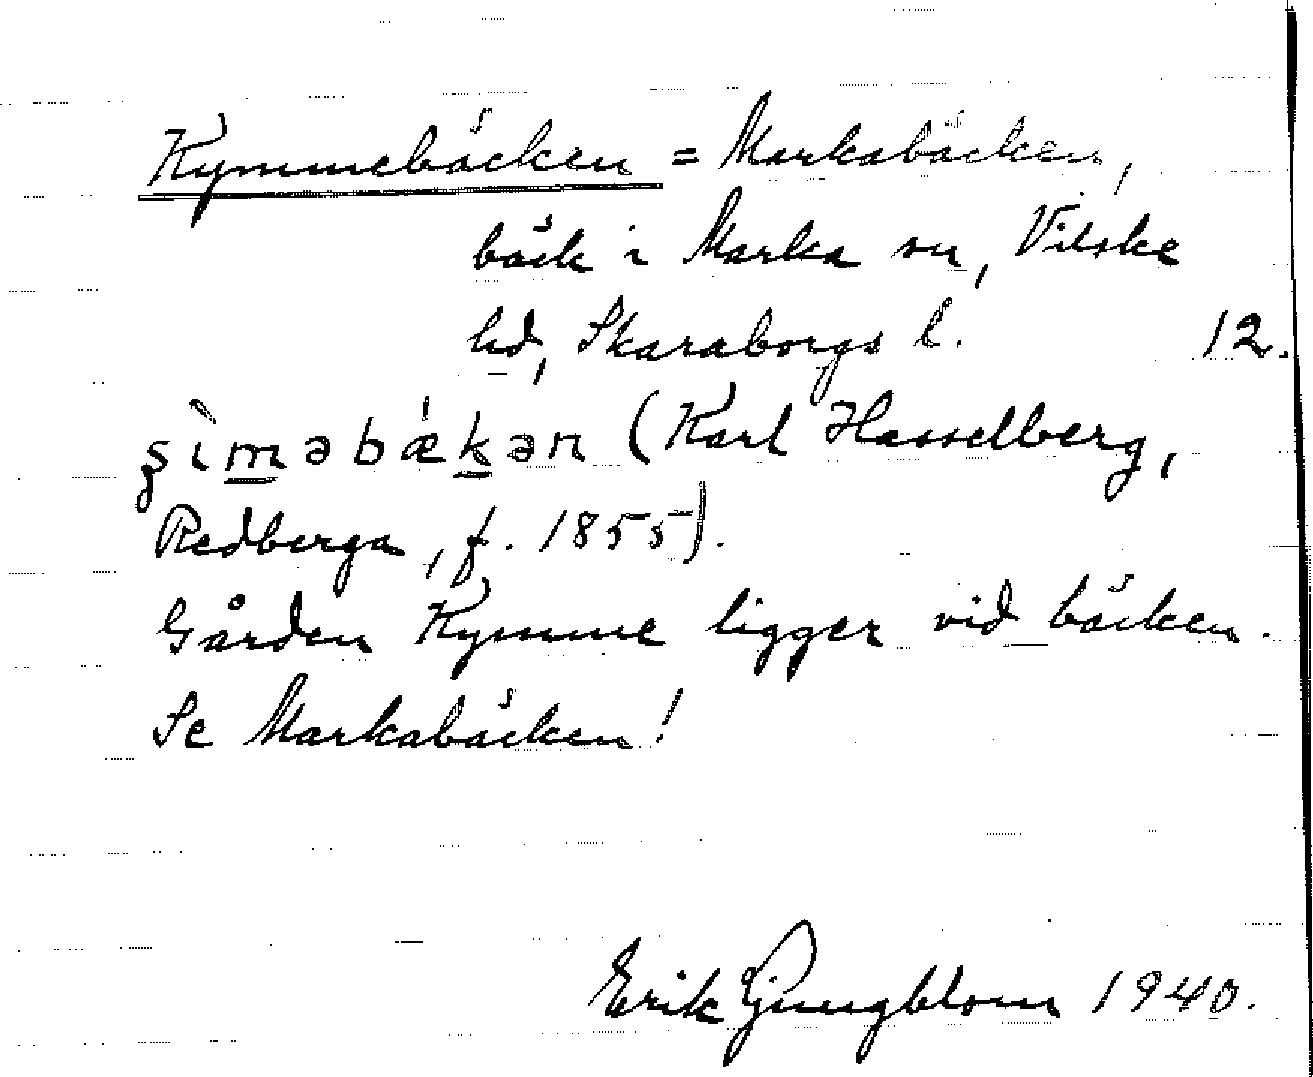 Kymmebäcken = Markabäcken,
bäck i Marka sn, Vilske
hd, Skaraborgs l. 12.
şìməbǽkən (Karl Hasselberg,
Redberga, f. 1855).
Gården Kymme ligger vid bäcken.
Se Markabäcken!
Erik Ljungblom 1940.